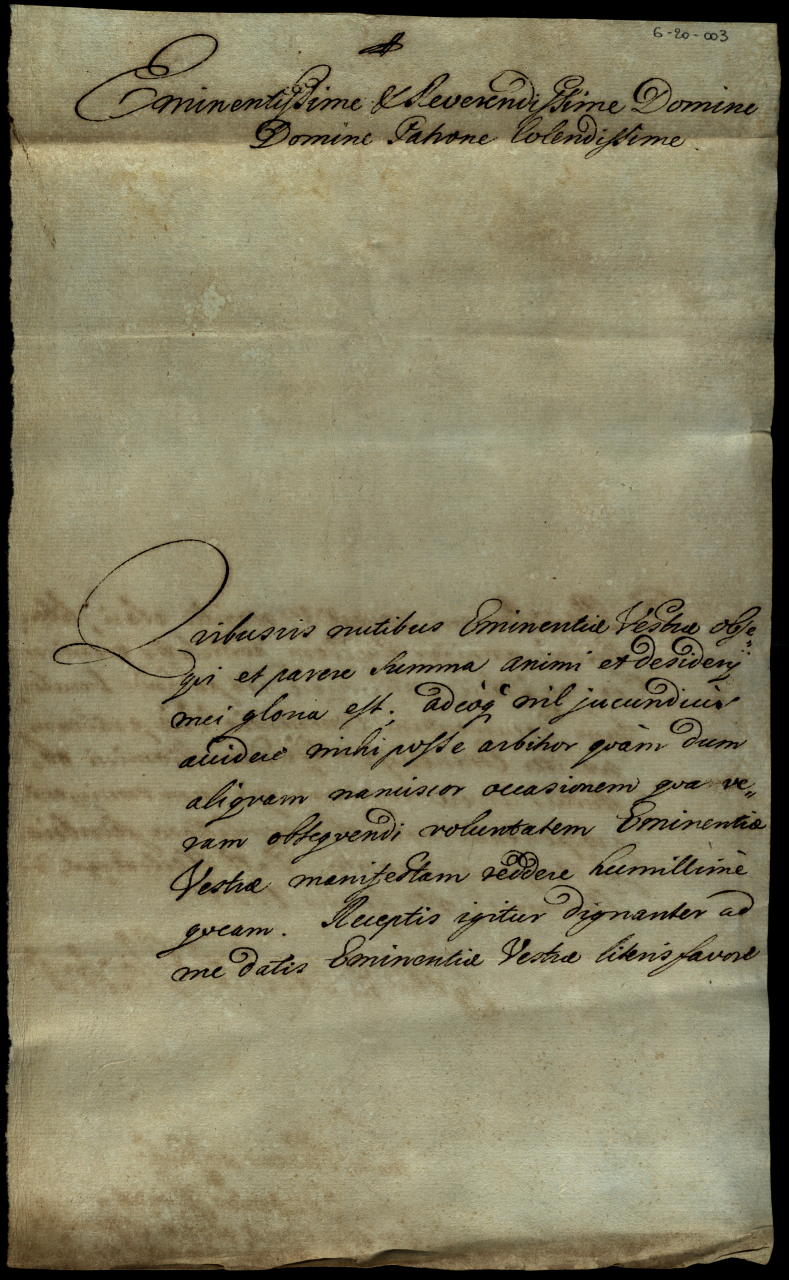 6-20-003
Eminentissime & Reverendissime Domine
Domine Patrone Colendissime
Quibusvis nutibus Eminentiæ Vestræ obse„
qvi et parere summa animi et desiderij
mei gloria est; adeoq́ nil jucundius
accidere mihi posse arbitror qvàm dum
aliqvam nanciscor occasionem qva ve„
ram obseqvendi voluntatem Eminentiæ
Vestræ manifestam reddere humillimè
qveam. Receptis igitur dignanter ad
me datis Eminentiæ Vestræ literis favore